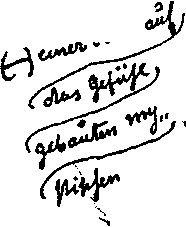 (–) einer .. auf
das Gefühl
gebauten my..
stischen